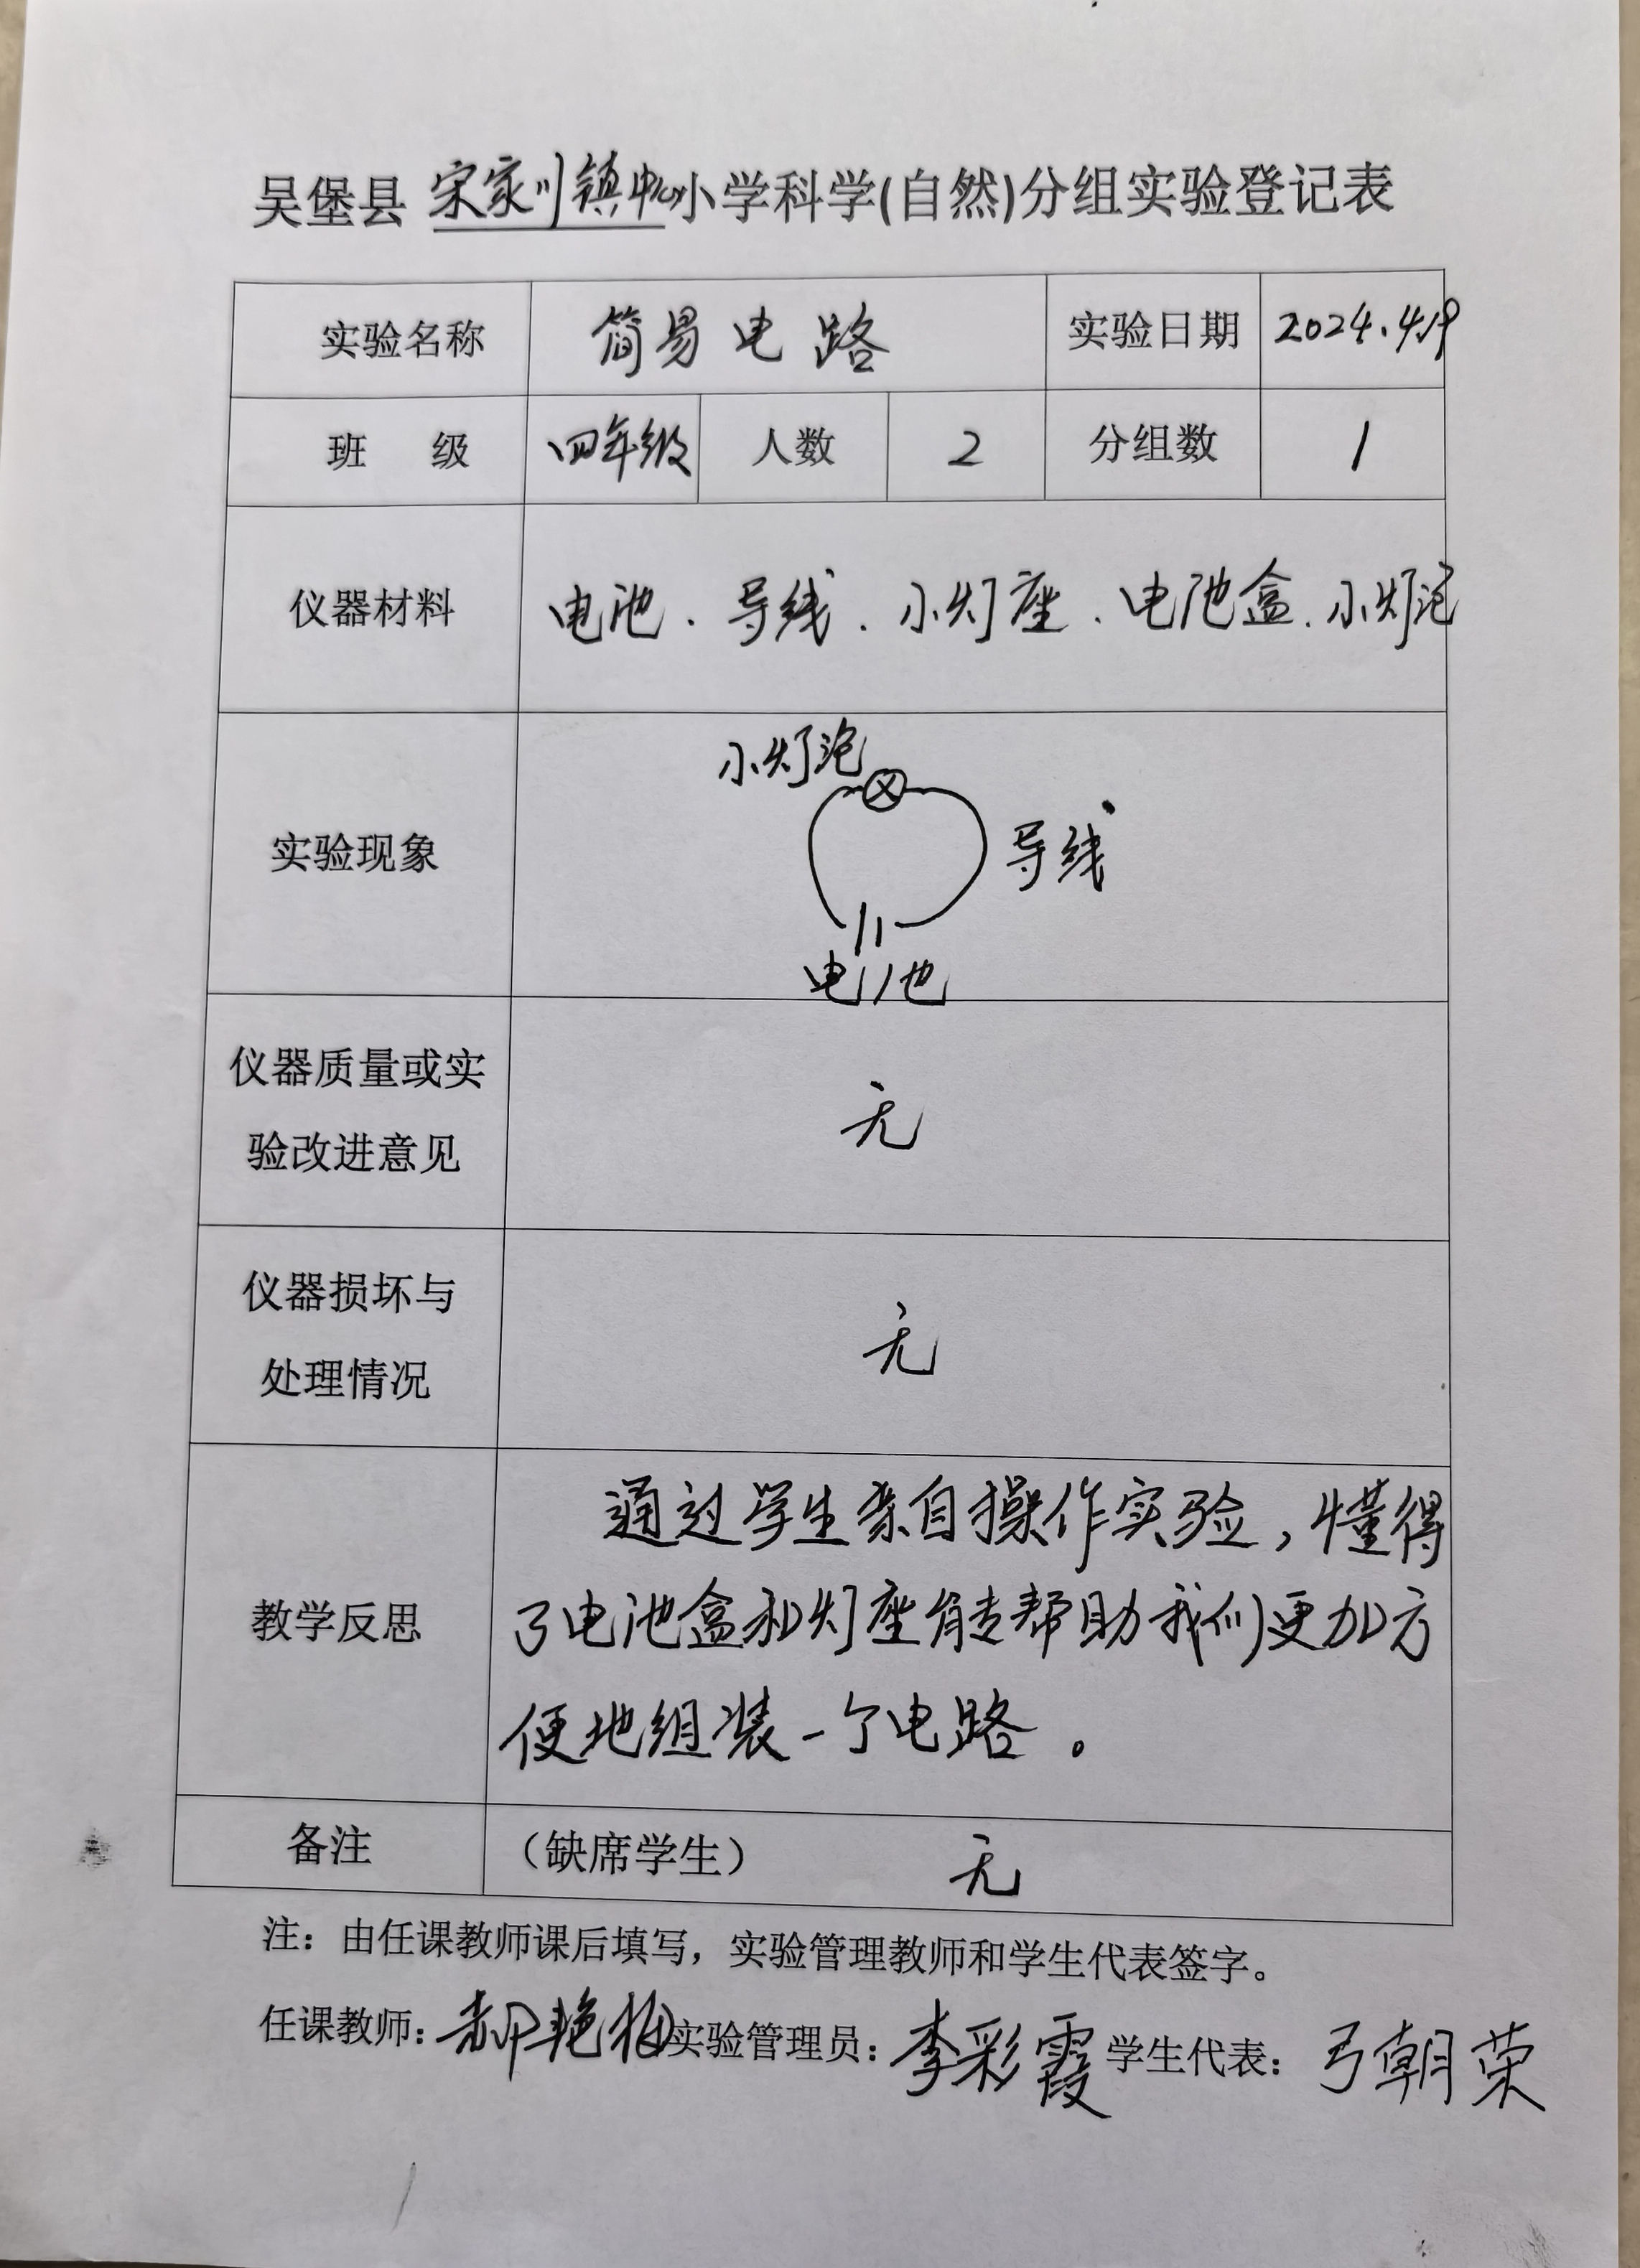 吴堡县 宋家川镇中心小学科学(自然)分组实验登记表
实验名称 简易电路 实验日期 2024.4.19
班 级 四年级 人数 2 分组数 1
仪器材料 电池．导线．小灯座．电池盒．小灯泡
小灯泡
实验现象 导线
电池
仪器质量或实
验改进意见
无
仪器损坏与
处理情况
无
教学反思
通过学生亲自操作实验，懂得
了电池盒和灯座能帮助我们更加方
便地组装一个电路。
备注 （缺席学生） 无
注：由任课教师课后填写，实验管理教师和学生代表签字。
任课教师：郝艳梅 实验管理员：李彩霞 学生代表：弓朝荣